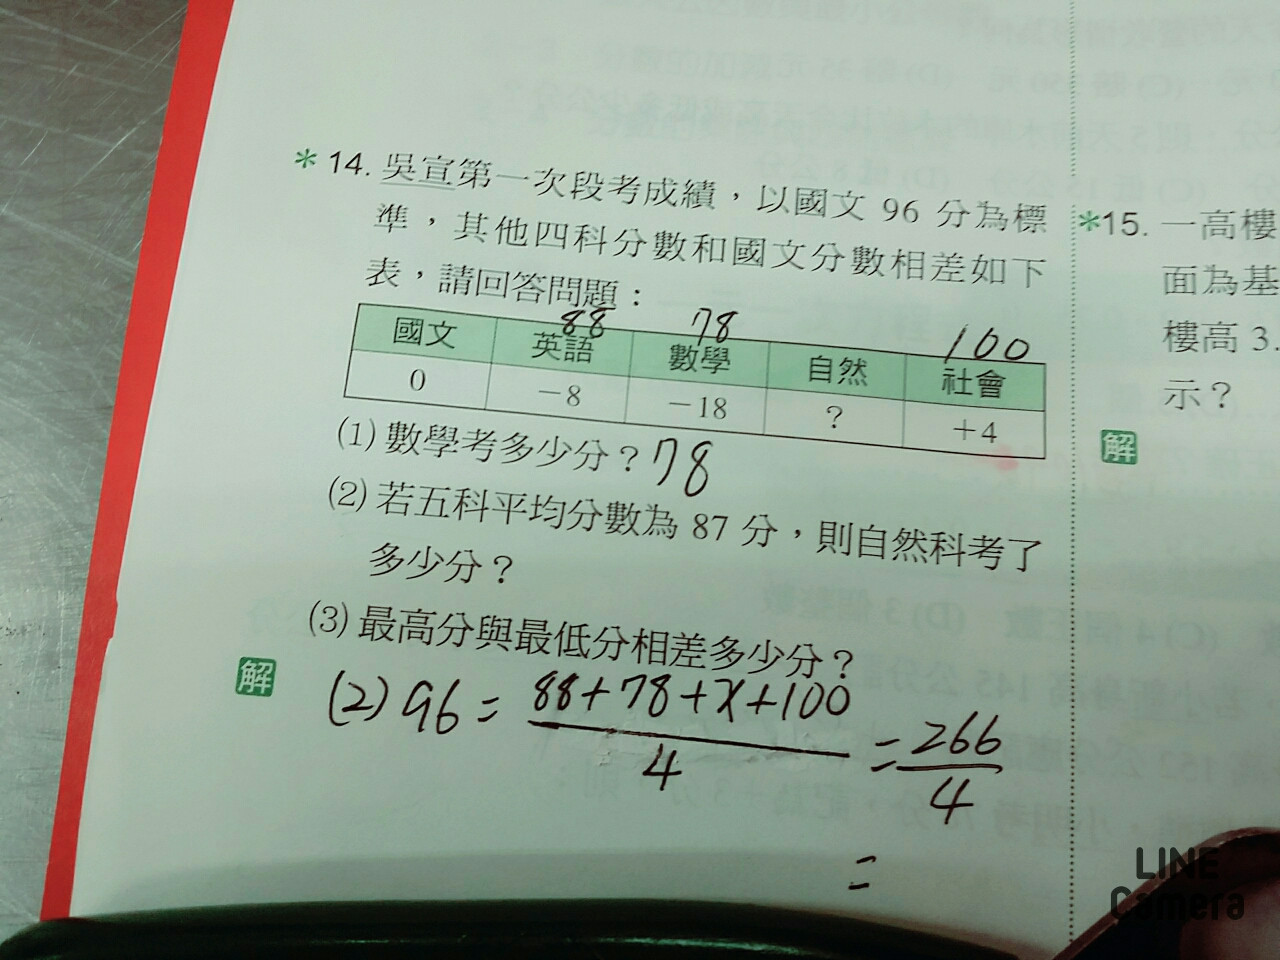 * 14. 吳宣第一次段考成績，以國文 96 分為標
準，其他四科分數和國文分數相差如下
表，請回答問題：
88 78 100
國文 英語 數學 自然 社會
0 －8 －18 ？ ＋4
(1) 數學考多少分？78
(2) 若五科平均分數為 87 分，則自然科考了
多少分？
(3) 最高分與最低分相差多少分？
解
(2) 96 = 88+78+x+100 / 4 = 266 / 4
=
*15. 一高樓
面為基
樓高 3.
示？
解
LINE
Camera